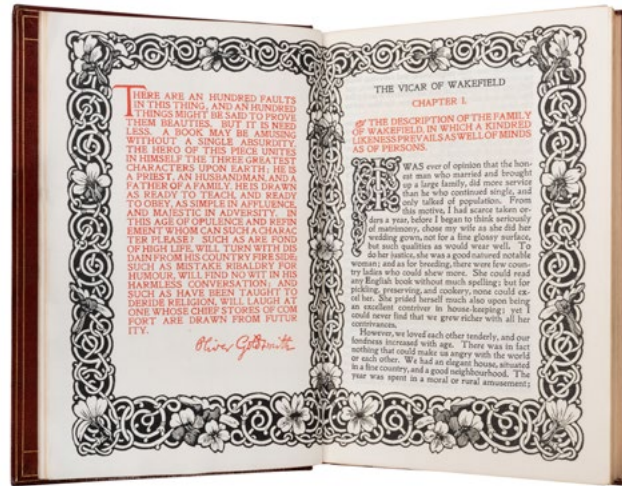 THERE ARE AN HUNDRED FAULTS
IN THIS THING, AND AN HUNDRED
THINGS MIGHT BE SAID TO PROVE
THEM BEAUTIES. BUT IT IS NEED
LESS. A BOOK MAY BE AMUSING
WITHOUT A SINGLE ABSURDITY.
THE HERO OF THIS PIECE UNITES
IN HIMSELF THE THREE GREATEST
CHARACTERS UPON EARTH; HE IS
A PRIEST, AN HUSBANDMAN, AND A
FATHER OF A FAMILY. HE IS DRAWN
AS READY TO TEACH, AND READY
TO OBEY, AS SIMPLE IN AFFLUENCE,
AND MAJESTIC IN ADVERSITY. IN
THIS AGE OF OPULENCE AND REFIN
EMENT WHOM CAN SUCH A CHARAC
TER PLEASE? SUCH AS ARE FOND
OF HIGH LIFE, WILL TURN WITH DIS
DAIN FROM HIS COUNTRY FIRE SIDE;
SUCH AS MISTAKE RIBALDRY FOR
HUMOUR, WILL FIND NO WIT IN HIS
HARMLESS CONVERSATION; AND
SUCH AS HAVE BEEN TAUGHT TO
DERIDE RELIGION, WILL LAUGH AT
ONE WHOSE CHIEF STORES OF COM
FORT ARE DRAWN FROM FUTUR
ITY.
Oliver Goldsmith
THE VICAR OF WAKEFIELD
CHAPTER I.
THE DESCRIPTION OF THE FAMILY
OF WAKEFIELD, IN WHICH A KINDRED
LIKENESS PREVAILS, AS WELL OF MINDS
AS OF PERSONS.
I WAS ever of opinion that the hon-
est man who married and brought
up a large family, did more service
than he who continued single, and
only talked of population. From
this motive, I had scarce taken or-
ders a year, before I began to think seriously
of matrimony, chose my wife as she did her
wedding gown, not for a fine glossy surface,
but such qualities as would wear well. To
do her justice, she was a good natured notable
woman; and as for breeding, there were few coun-
try ladies who could shew more. She could read
any English book without much spelling; but for
pickling, preserving, and cookery, none could ex-
cel her. She prided herself much also upon being
an excellent contriver in house-keeping; yet I
could never find that we grew richer with all her
contrivances.
However, we loved each other tenderly, and our
fondness increased with age. There was in fact
nothing that could make us angry with the world
or each other. We had an elegant house, situated
in a fine country, and a good neighbourhood. The
year was spent in a moral or rural amusement;